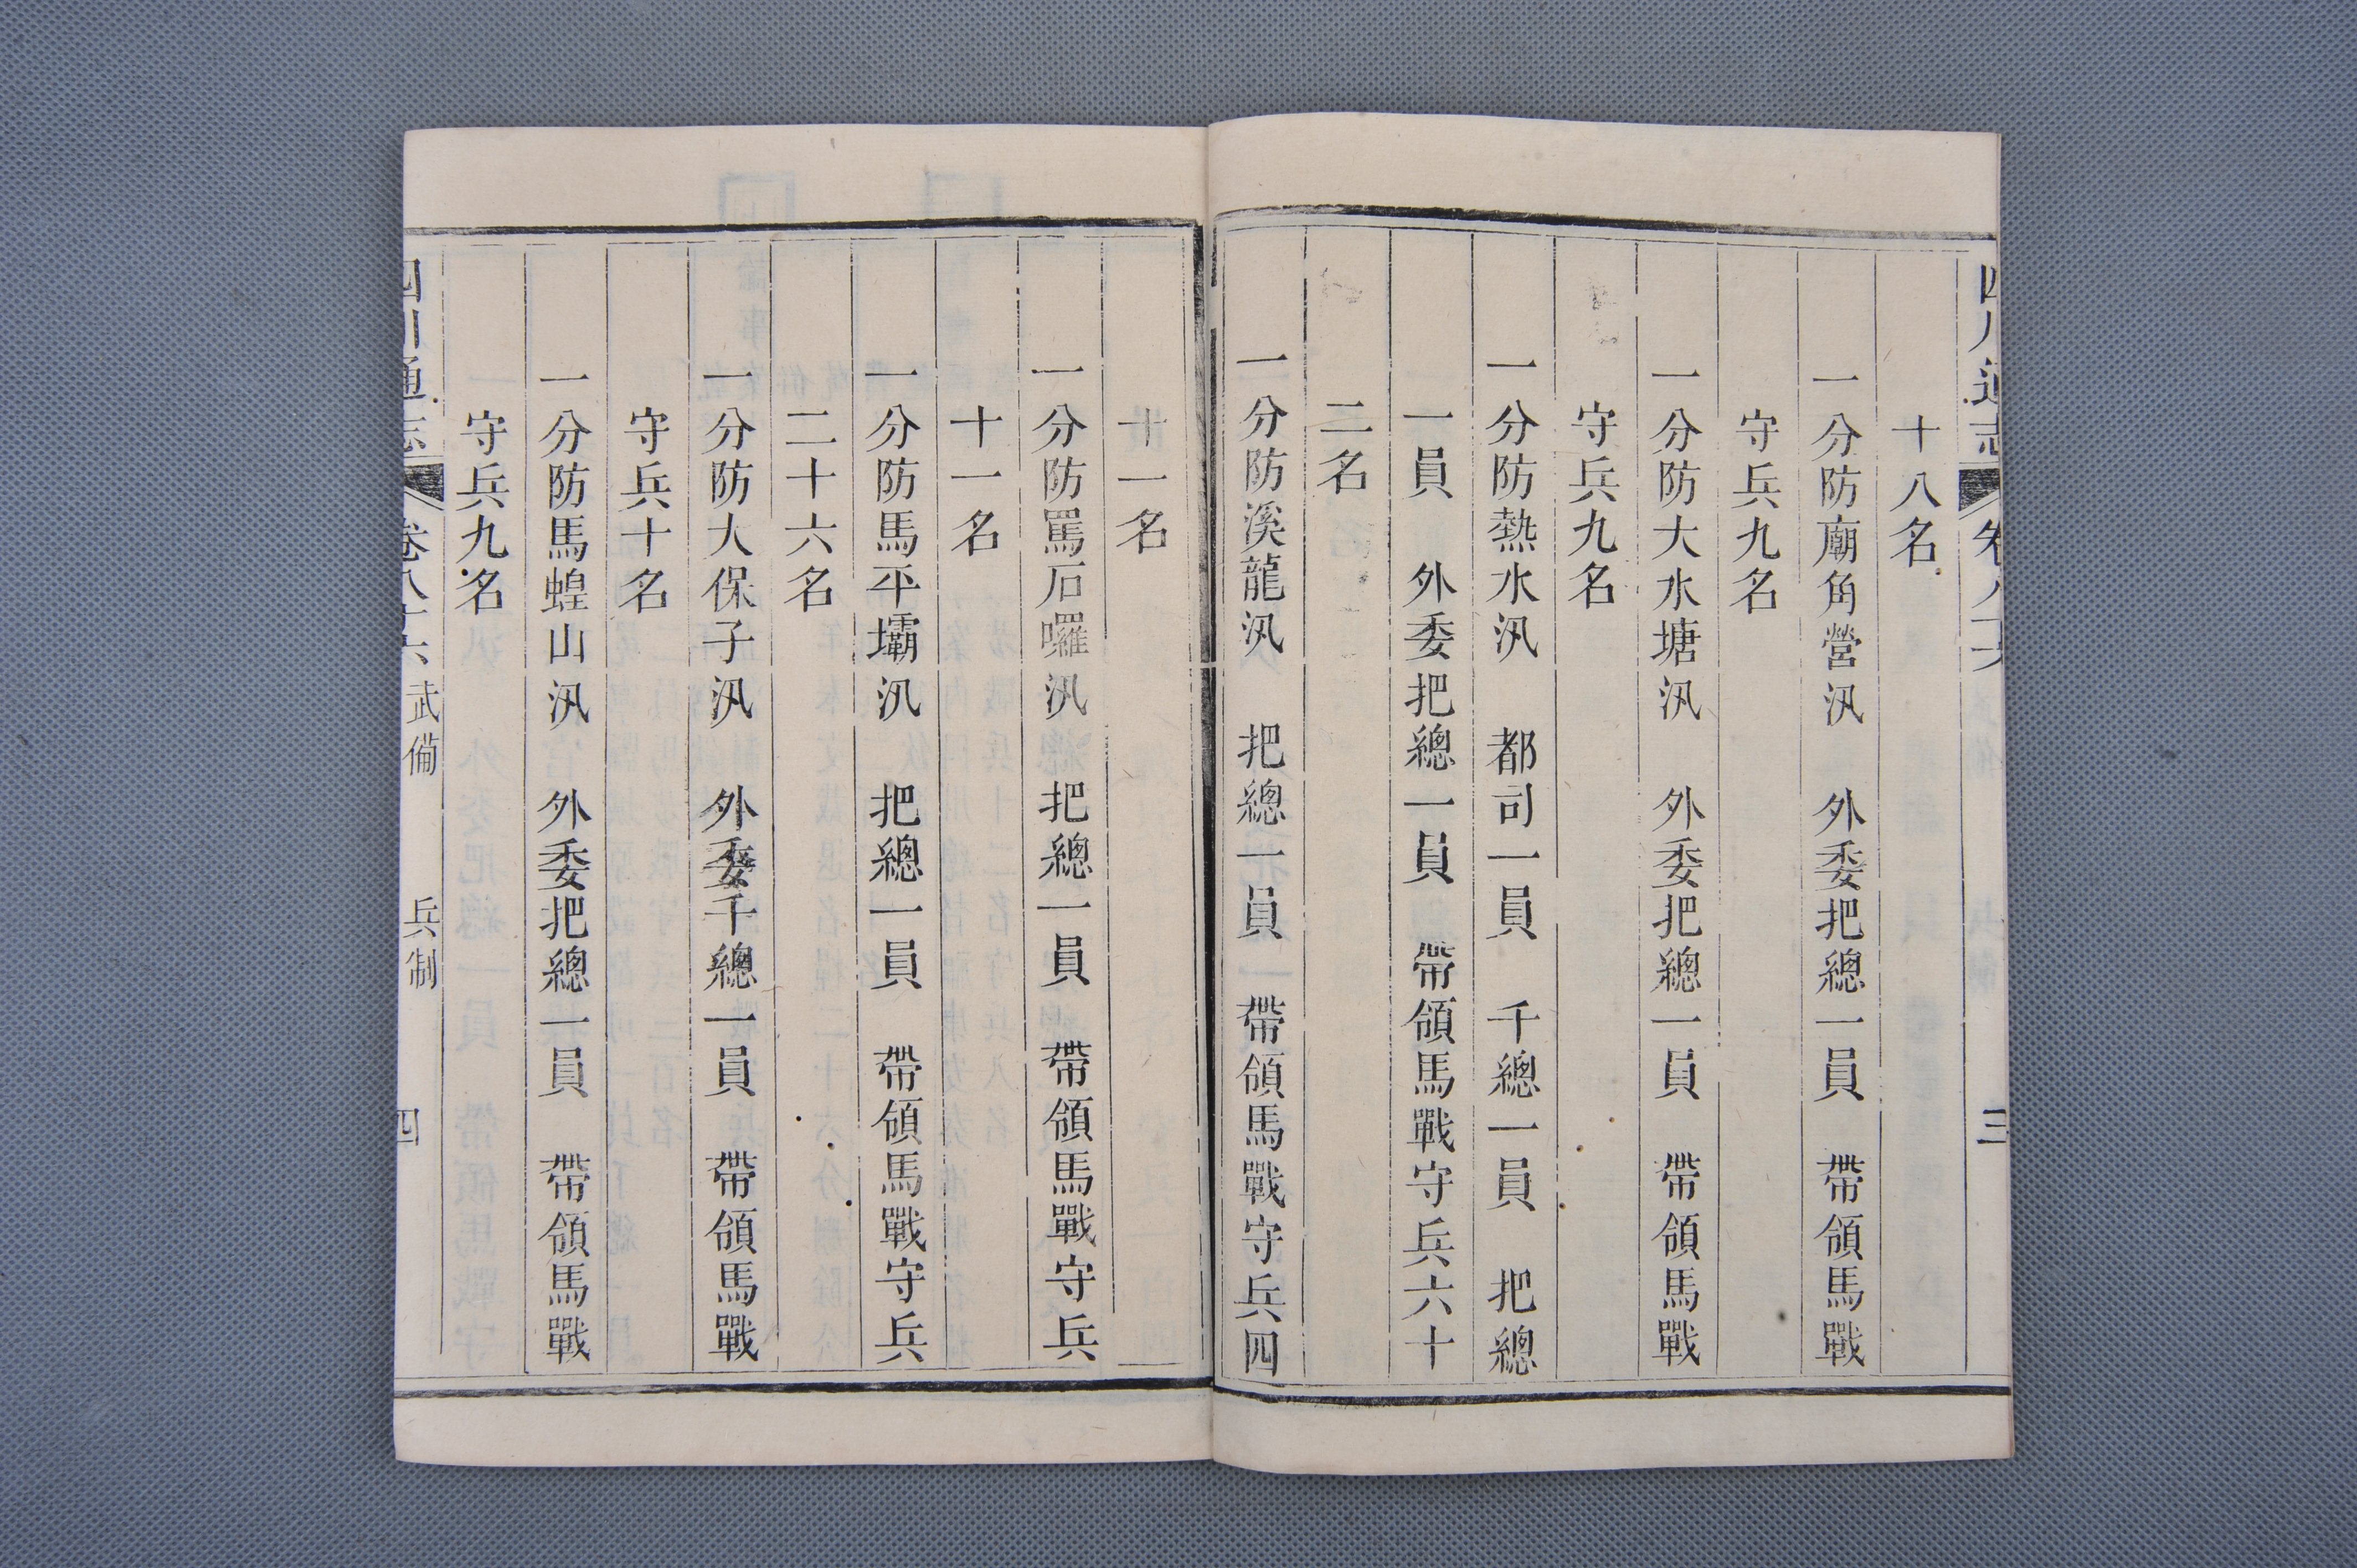 四川通志 卷八十六 三
十八名
一分防廟角營汛 外委把總一員 帶領馬戰
守兵九名
一分防大水塘汛 外委把總一員 帶領馬戰
守兵九名
一分防熱水汛 都司一員 千總一員 把總
一員 外委把總一員 帶領馬戰守兵六十
二名
一分防溪龍汛 把總一員 帶領馬戰守兵四
十一名
一分防罵石囉汛 把總一員 帶領馬戰守兵
十一名
一分防馬平壩汛 把總一員 帶領馬戰守兵
二十六名
一分防大保子汛 外委千總一員 帶領馬戰
守兵十名
一分防馬蝗山汛 外委把總一員 帶領馬戰
守兵九名
四川通志 卷八十六 武備 兵制 四